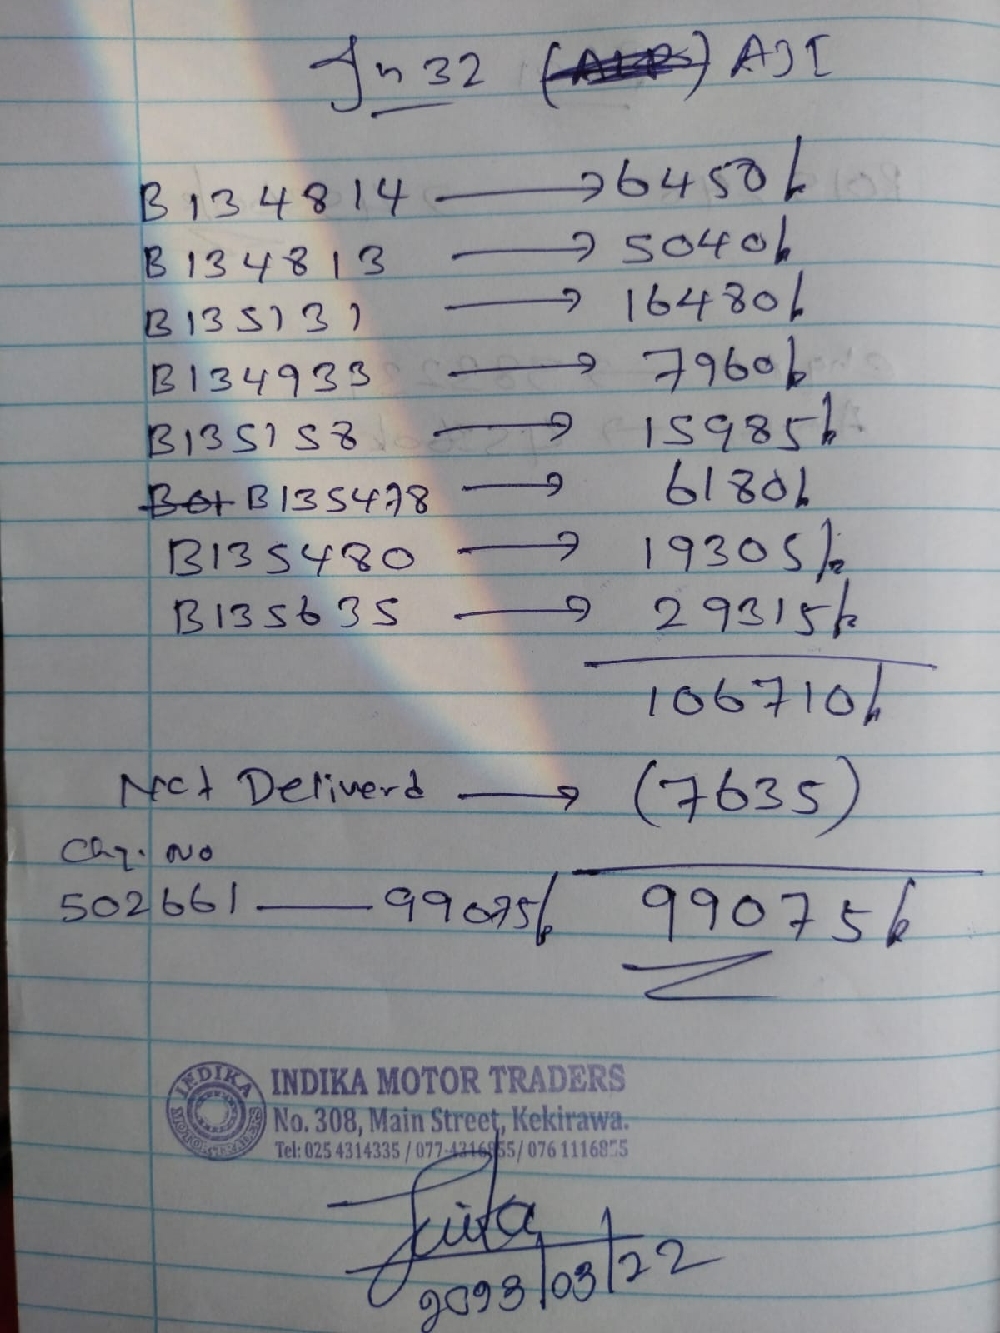 In 32 (AJI
B134814 → 6450/-
B134813 → 5040/-
B135131 → 16480/-
B134933 → 7960/-
B135158 → 15985/-
B135478 → 6180/-
B135480 → 19305/-
B135635 → 29315/-
106710/-
Not Deliverd → (7635)
Chq. No
502661 — 99075/- 99075/-
INDIKA
INDIKA MOTOR TRADERS
No. 308, Main Street, Kekirawa.
Tel: 025 4314335 / 077-4316855/ 076 1116855
2023/03/22